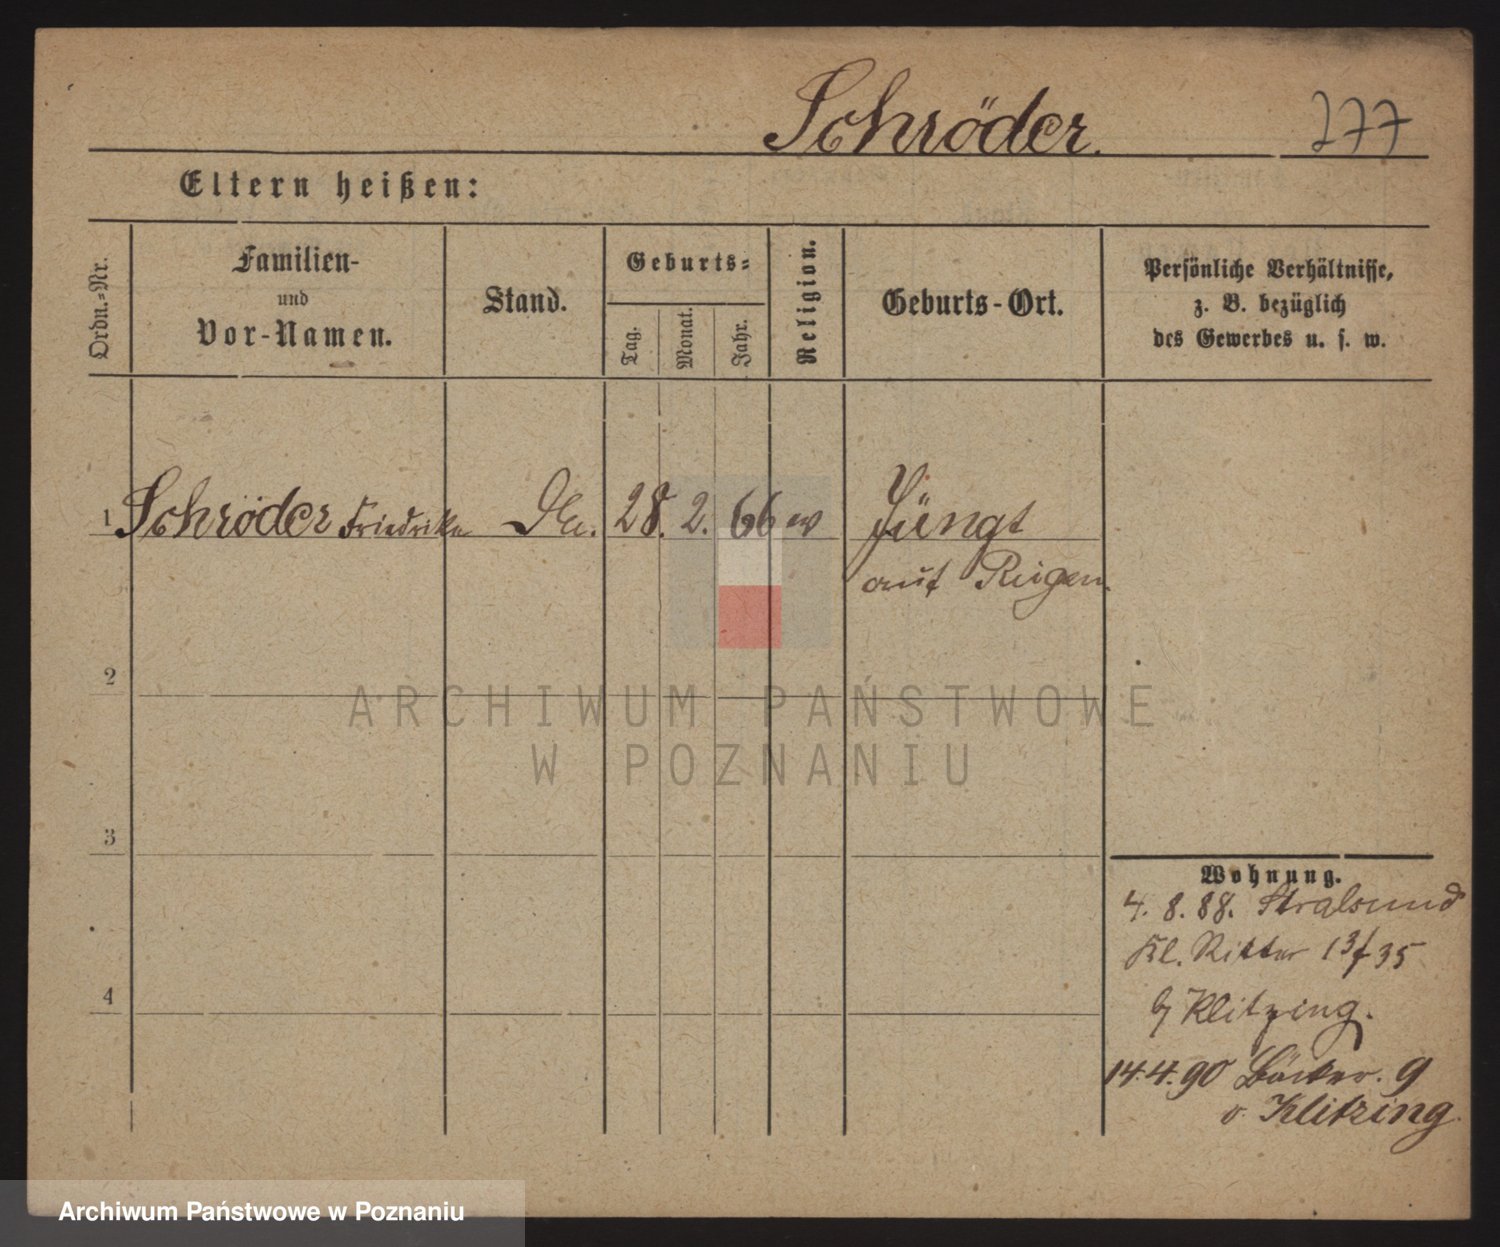 Schröder.
277
Eltern heißen:
Ordn.=Nr.
Familien-
und
Vor-Namen.
Stand.
Geburts=
Tag.
Monat.
Jahr.
Religion.
Geburts-Ort.
Persönliche Verhältnisse,
z. B. bezüglich
des Gewerbes u. s. w.
1 Schröder Friedrike 28. 2. 66 ev Jüngt
auf Rügen.
2
3
4
Wohnung.
4. 8. 88. Stralsund
Kl. Ritter 13/35
b/ Klitzing.
14.4.90 Bäcker. 9
v. Klitzing
ARCHIWUM PAŃSTWOWE
W POZNANIU
Archiwum Państwowe w Poznaniu